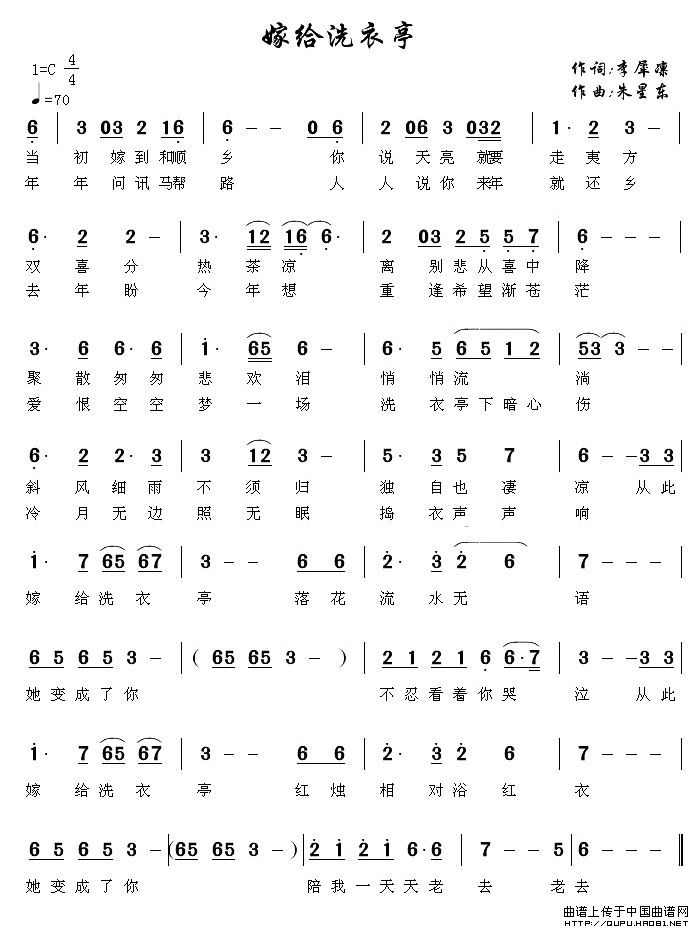 嫁给洗衣亭
1=C 4/4
作词:李犀凛
♩=70
作曲:朱星东
6 | 3 03 2 16 | 6 - - 0 6 | 2 06 3 032 | 1· 2 3 - |
当 初 嫁 到 和顺 乡 你 说 天亮 就要 走 夷 方
年 年 问 讯 马帮 路 人 人 说你 来年 就 还 乡
6· 2 2 - | 3· 12 16 6· | 2 03 2 5 5 7 | 6 - - - |
双 喜 分 热 茶 凉 离 别 悲 从 喜 中 降
去 年 盼 今 年 想 重 逢 希 望 渐 苍 茫
3· 6 6· 6 | 1· 65 6 - | 6· 5 6 5 1 2 | 53 3 - - |
聚 散 匆 匆 悲 欢 泪 悄 悄 流 淌
爱 恨 空 空 梦 一 场 洗 衣 亭 下 暗 心 伤
6· 2 2· 3 | 3 12 3 - | 5· 3 5 7 | 6 - - 3 3 |
斜 风 细 雨 不 须 归 独 自 也 凄 凉 从 此
冷 月 无 边 照 无 眠 捣 衣 声 声 响
1· 7 65 67 | 3 - - 6 6 | 2· 3 2 6 | 7 - - - |
嫁 给 洗 衣 亭 落 花 流 水 无 语
6 5 6 5 3 - | ( 65 65 3 - ) | 2 1 2 1 6 6·7 | 3 - - 3 3 |
她 变 成 了 你 不 忍 看 着 你 哭 泣 从 此
1· 7 65 67 | 3 - - 6 6 | 2· 3 2 6 | 7 - - - |
嫁 给 洗 衣 亭 红 烛 相 对 浴 红 衣
6 5 6 5 3 - | (65 65 3 -) | 2 1 2 1 6·6 | 7 - - 5 | 6 - - ‖
她 变 成 了 你 陪 我 一 天 天 老 去 老 去
曲谱上传于中国曲谱网
HTTP://QUPU.HAO81.NET